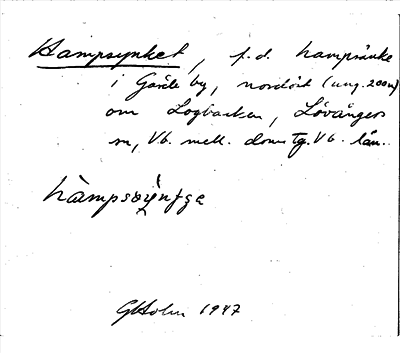 Hampsynket, f.d. hampsänke
i Gärde by, nordöst (ung. 200 m)
om Logbacken, Lövångers
sn, Vb. mell. doms tg. Vb. län.
GHolm 1947